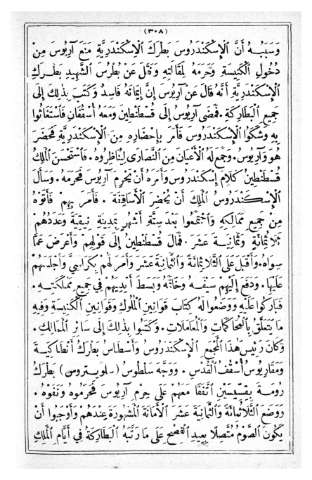 (٣٠٨)
وَسَبَبُهُ أَنَّ ٱلْإِسْكَنْدَرُوسَ بَطْرَكَ ٱلْإِسْكَنْدَرِيَّةِ مَنَعَ آرِيُوسَ مِنْ
دُخُولِ ٱلْكَنِيسَةِ وَحَرَمَهُ لِمَقَالَتِهِ وَنَقَلَ عَنْ بُطْرُسَ ٱلشَّهِيدِ بَطْرَكِ
ٱلْإِسْكَنْدَرِيَّةِ أَنَّهُ قَالَ عَنْ آرِيُوسَ إِنَّ إِيمَانَهُ فَاسِدٌ وَكَتَبَ بِذٰلِكَ إِلَى
جَمِيعِ ٱلْبَطَارِكَةِ. فَمَضَى آرِيُوسُ إِلَى قُسْطَنْطِينَ وَمَعَهُ أُسْقُفَانِ فَٱسْتَغَاثُوا
بِهِ وَشَكَوُا ٱلْإِسْكَنْدَرُوسَ فَأَمَرَ بِإِحْضَارِهِ مِنَ ٱلْإِسْكَنْدَرِيَّةِ فَحَضَرَ
هُوَ وَآرِيُوسُ. وَجَمَعَ لَهُ ٱلْأَعْيَانَ مِنَ ٱلنَّصَارَى لِيُنَاظِرُوهُ. فَٱسْتَحْسَنَ ٱلْمَلِكُ
قُسْطَنْطِينُ كَلَامَ إِسْكَنْدَرُوسَ وَأَمَرَهُ أَنْ يَحْرِمَ آرِيُوسَ فَحَرَمَهُ. وَسَأَلَ
ٱلْإِسْكَنْدَرُوسُ ٱلْمَلِكَ أَنْ يُحْضِرَ ٱلْأَسَاقِفَةَ. فَأَمَرَ بِهِمْ فَأَتَوْهُ
مِنْ جَمِيعِ مَمَالِكِهِ وَٱجْتَمَعُوا بَعْدَ سِتَّةِ أَشْهُرٍ بِمَدِينَةِ نِيقِيَةَ وَعَدَدُهُمْ
ثَلَاثُمِائَةٍ وَثَمَانِيَةَ عَشَرَ. فَمَالَ قُسْطَنْطِينُ إِلَى قَوْلِهِمْ وَأَعْرَضَ عَمَّا
سِوَاهُ. وَأَقْبَلَ عَلَى ٱلثَّلَاثِمِائَةِ وَٱلثَّمَانِيَةَ عَشَرَ وَأَمَرَ لَهُمْ بِكَرَاسِيَّ وَأَجْلَسَهُمْ
عَلَيْهَا. وَدَفَعَ إِلَيْهِمْ سَيْفَهُ وَخَاتَمَهُ وَبَسَطَ أَيْدِيَهُمْ فِي جَمِيعِ مَمْلَكَتِهِ.
فَبَارَكُوا عَلَيْهِ وَوَضَعُوا لَهُ كِتَابَ قَوَانِينِ ٱلْمُلُوكِ وَقَوَانِينِ ٱلْكَنِيسَةِ وَفِيهِ
مَا يَتَعَلَّقُ بِٱلْمُحَاكَمَاتِ وَٱلْمُعَامَلَاتِ. وَكَتَبُوا بِذٰلِكَ إِلَى سَائِرِ ٱلْمَمَالِكِ.
وَكَانَ رَئِيسَ هٰذَا ٱلْمَجْمَعِ ٱلْإِسْكَنْدَرُوسُ وَأَسْطَاسُ بَطْرَكُ أَنْطَاكِيَةَ
وَمَقَارِيُوسُ أُسْقُفُ ٱلْقُدْسِ. وَوَجَّهَ سَلْطُوسُ (سلوبستروس) بَطْرَكُ
رُومِيَةَ بِقِسِّيسَيْنِ ٱتَّفَقَا مَعَهُمْ عَلَى حِرْمِ آرِيُوسَ فَحَرَمُوهُ وَنَفَوْهُ.
وَوَضَعَ ٱلثَّلَاثُمِائَةِ وَٱلثَّمَانِيَةَ عَشَرَ ٱلْأَمَانَةَ ٱلْمَشْهُورَةَ عِنْدَهُمْ وَأَوْجَبُوا أَنْ
يَكُونَ ٱلصَّوْمُ مُتَّصِلًا بِعِيدِ ٱلْفِصْحِ عَلَى مَا رَتَّبَهُ ٱلْبَطَارِكَةُ فِي أَيَّامِ ٱلْمَلِكِ